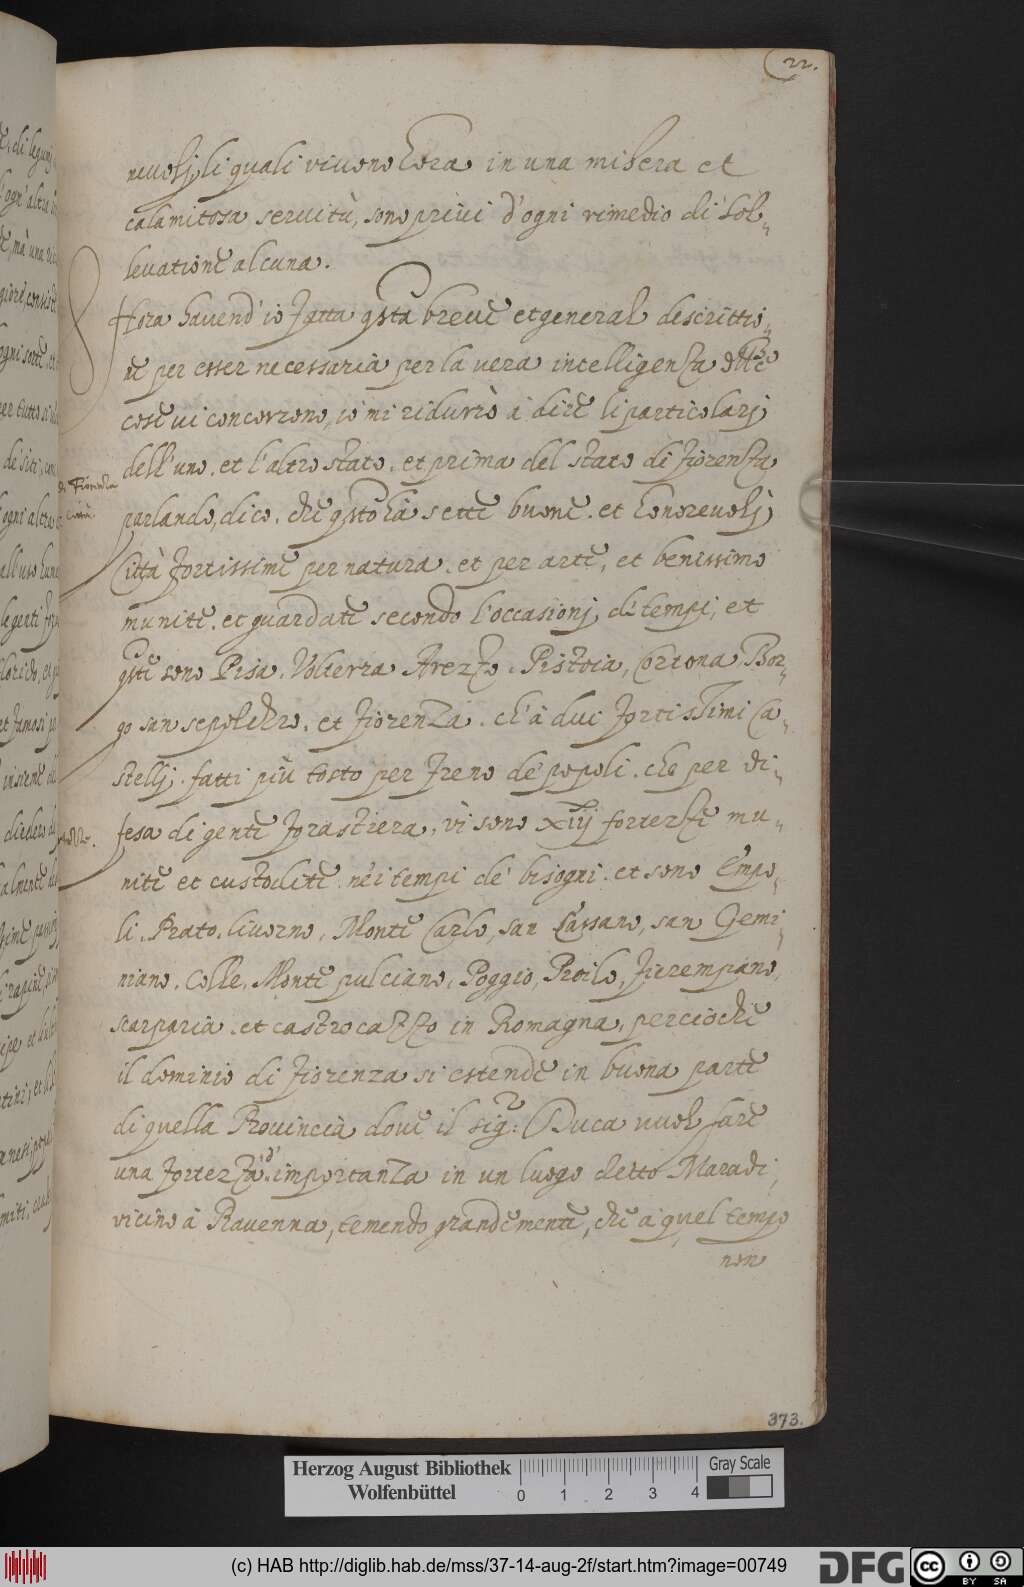 22.
nevolj, li quali vivono hora in una misera et
calamitosa servitù, sono privi d'ogni rimedio di sol„
levatione alcuna.
Hora havend' io fatta qsta breve et general descrittio„
ne per esser necessaria per la vera intelligenza
cose vi concorrono, io mi ridurrò à dire li particolarj
dell' uno, et l'altro stato, et prima del stato di fiorenza
parlando, dico, che qsto hà sette buone, et honorevolj
Città fortissime per natura, et per arte, et benissimo
munite, et guardate secondo l'occasionj, de tempi, et
qste sono Pisa, Volterra Arezzo, Pistoia, Cortona Bor„
go san sepolchro, et fiorenza, ch' à dui fortissimi Ca„
stellj, fatti più tosto per freno de popoli, che per di„
fesa di gente forastiera, vi sono xiij fortezze mu„
nite et custodite nei tempi de' bisogni, et sono Empo„
li, Prato, livorno, Monte Carlo, san Cassano, san Gemi„
niano, Colle, Monte pulciano, Poggio, Proilo, firempano,
scarparia, et castrocazzo in Romagna, percioche
il dominio di fiorenza si estende in buona parte
di quella Provincia dove il sig:r Duca vuol fare
una fortezza d' importanza in un luogo detto Maradi,
vicino à Ravenna, temendo grandemente, che à quel tempo
non
di Fiorenza
Città
373.
Herzog August Bibliothek
Wolfenbüttel
0 1 2 3 4
Gray Scale
(c) HAB http://diglib.hab.de/mss/37-14-aug-2f/start.htm?image=00749
DFG
cc BY SA